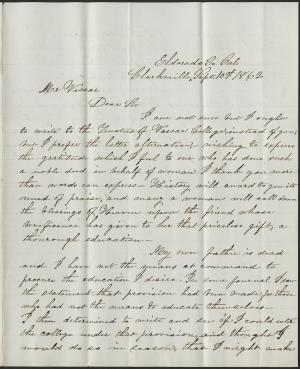 Eldorado Co. Cal
Clarksville, Sept. 10th 1862
Mr Vassar
Dear Sir
I am not sure but I ought
to write to the Trustees of Vassar College, instead of you,
but I prefer the latter alternative; wishing to express
the gratitude which I feel to one who has done such
a noble deed in behalf of woman. I thank you more
than words can express. History will award to you its
meed of praise, and many a woman will call down
the blessings of Heaven upon the friend whose
beneficence has given to her that priceless gift, a
thorough education.
My own father is dead
and I have not the means at command to
procure the education I desire. In some journal I saw
the statement that provision had been made for those
who had not the means to educate themselves.
I then determined to write and see if I could enter
the college under that provision, and thought I
would do so in season, that I might make